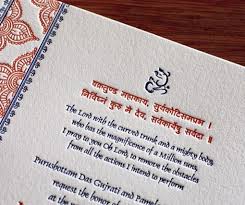 वक्रतुण्ड महाकाय, सुर्यकोटिसमप्रभ ।
निर्विघ्नं कुरु मे देव, सर्वकार्येषु सर्वदा ॥
The Lord with the curved trunk and a mighty body,
who has the magnificence of a Million suns,
I pray to you Oh Lord, to remove the obstacles
from all the actions I intend to perform
Purushottam Das Gujrati and
request the honor of